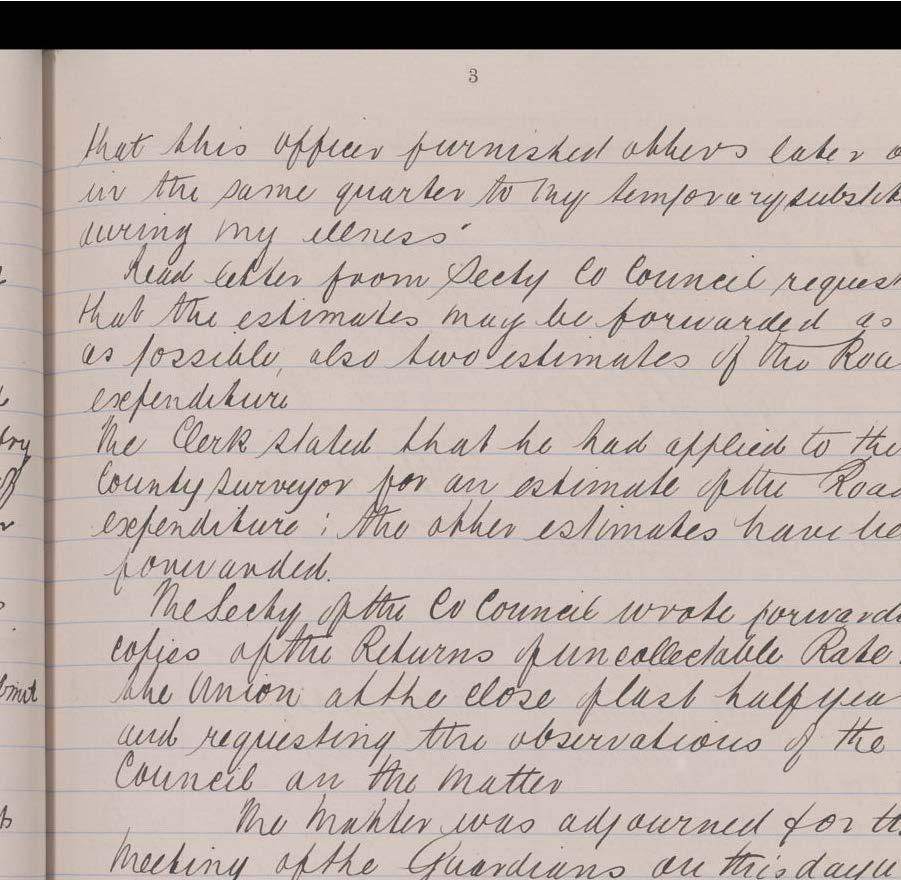 3
that this officer furnished others later o
in the same quarter to my temporary substit
during my illness"
Read letter from Secty Co Council request
that the estimates may be forwarded as
as possible, also two estimates of the Roa
expenditure
The Clerk stated that he had applied to the
County surveyor for an estimate of the Road
expenditure ; the other estimates have be
forwarded.
The Secty of the Co Council wrote forwardi
copies of the Returns of uncollectable Rate
the Union at the close of last half year
and requesting the observations of the
Council on the matter
The matter was adjourned for th
meeting of the Guardians on this day